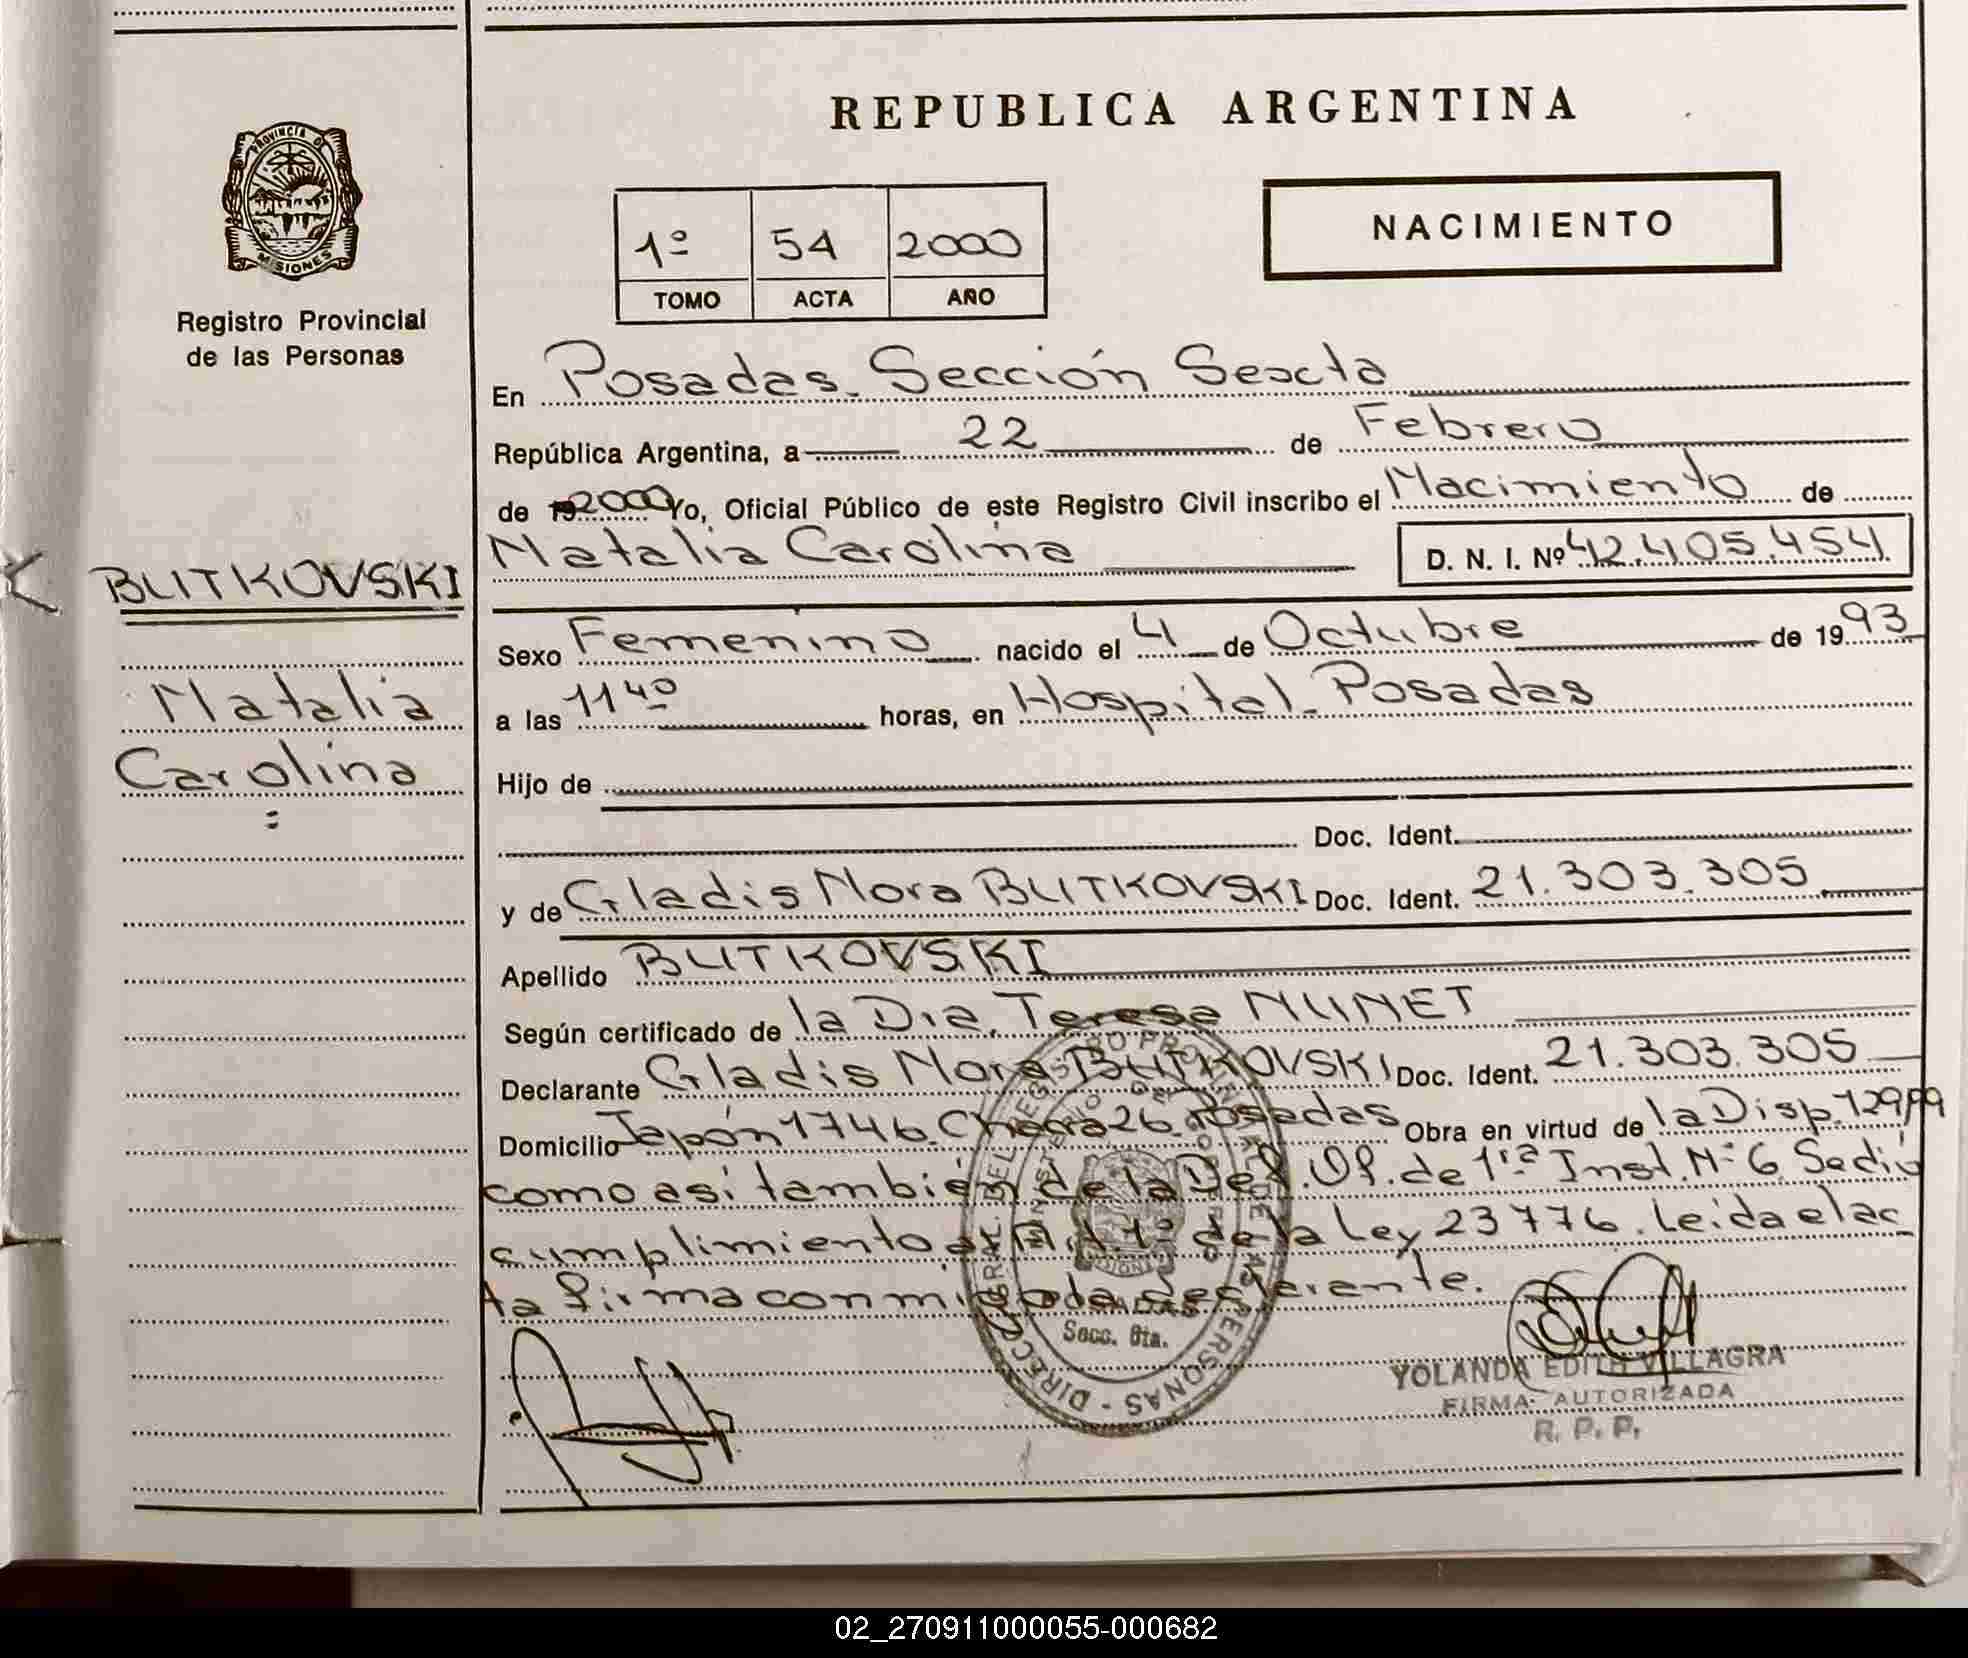 REPUBLICA ARGENTINA
PROVINCIA DE
MISIONES
Registro Provincial
de las Personas
1º 54 2000
TOMO ACTA AÑO
NACIMIENTO
En Posadas. Sección Sexta
República Argentina, a 22 de Febrero
de 19 2000 Yo, Oficial Público de este Registro Civil inscribo el Nacimiento de
Natalia Carolina D. N. I. Nº 42.405.454
BUTKOVSKI
Natalia
Carolina
Sexo Femenino nacido el 4 de Octubre de 1993
a las 11 40 horas, en Hospital Posadas
Hijo de
Doc. Ident.
y de Gladis Nora BUTKOVSKI Doc. Ident. 21.303.305
Apellido BUTKOVSKI
Según certificado de la Dra. Teresa NUNET
Declarante Gladis Nora BUTKOVSKI Doc. Ident. 21.303.305
Domicilio Japón 1746. Chacra 26. Posadas Obra en virtud de la Disp. 129/99
como así también de la Def. Of. de 1ra Inst. Nº 6. Se dió
cumplimiento al Art. 1º de la Ley 23776. Leida el ac
ta firma conmigo la declarante.
Secc. 6ta.
YOLANDA EDITH VILLAGRA
FIRMA AUTORIZADA
R. P. P.
02_270911000055-000682